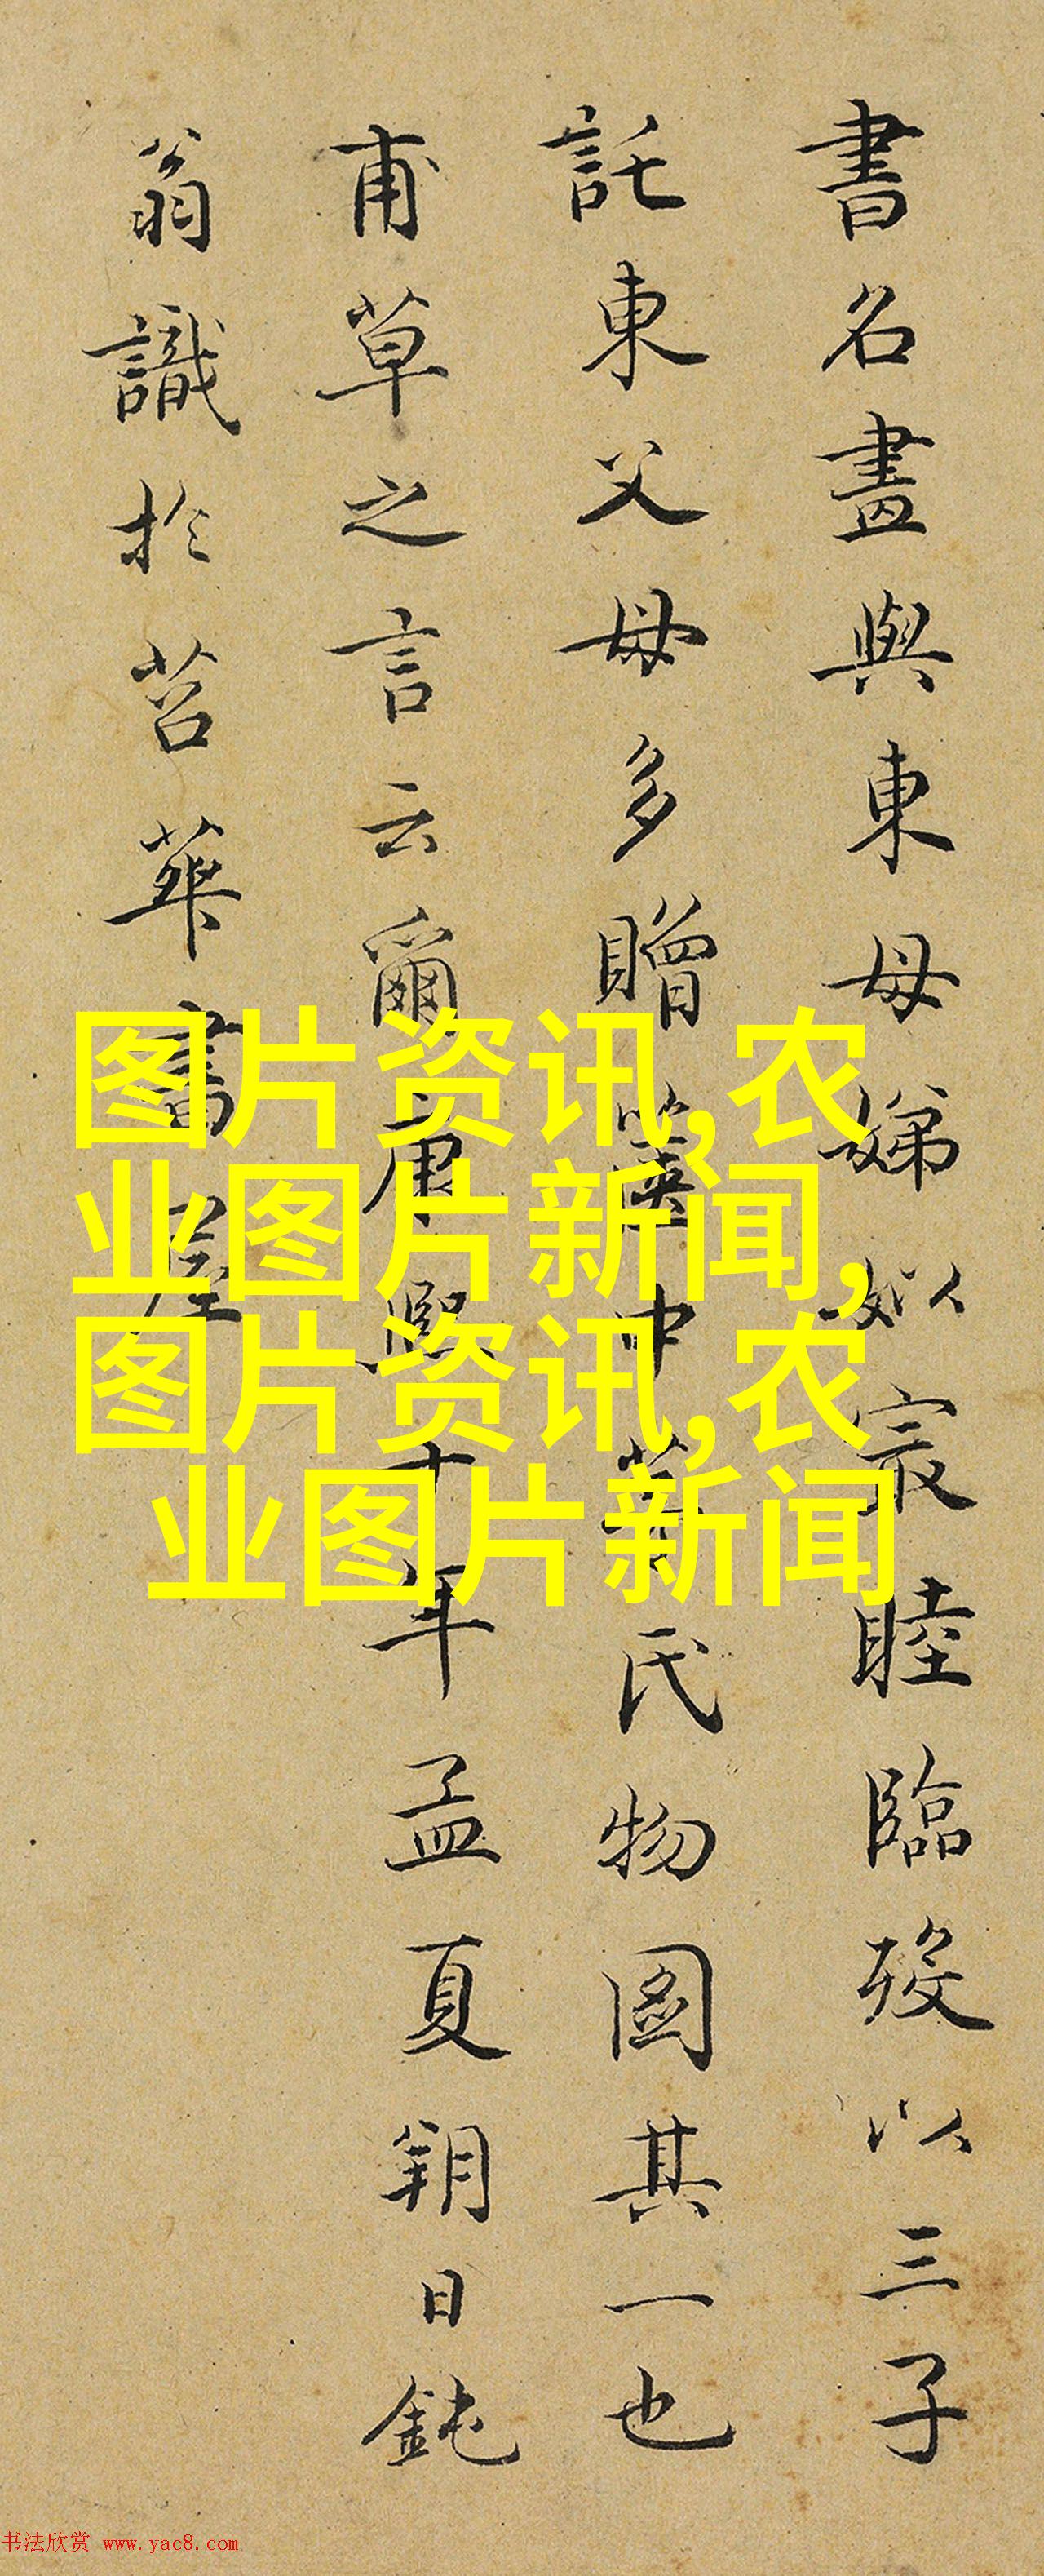 書名畫與東母娣姒宸睦臨歿以三子
託東父母多贈篋中蔡氏物圖其一也
甫草之言云爾康熙十年孟夏朔日鈍
翁識於苕華書屋
图片资讯,农
业图片新闻,
图片资讯,农
业图片新闻
书法欣赏 www.yac8.com